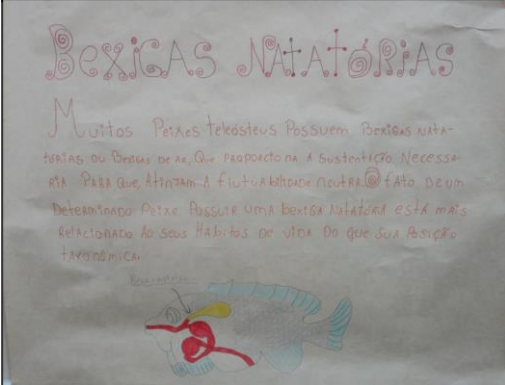 BEXIGAS NATATÓRIAS
Muitos Peixes teleósteus Possuem Bexigas Nata-
tórias ou Bexigas de ar, que proporciona a sustentação necessa-
ria para que, atinjam a flutuabilidade neutra. O fato de um
Determinado Peixe Possuir uma bexiga natatória está mais
Relacionado ao seus Hábitos de vida do que sua Posição
taxonômica.